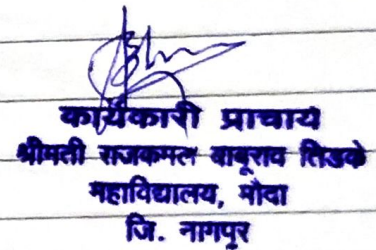 कार्यकारी प्राचार्य
श्रीमती राजकमल बाबूराव तिडके
महाविद्यालय, मौदा
जि. नागपूर